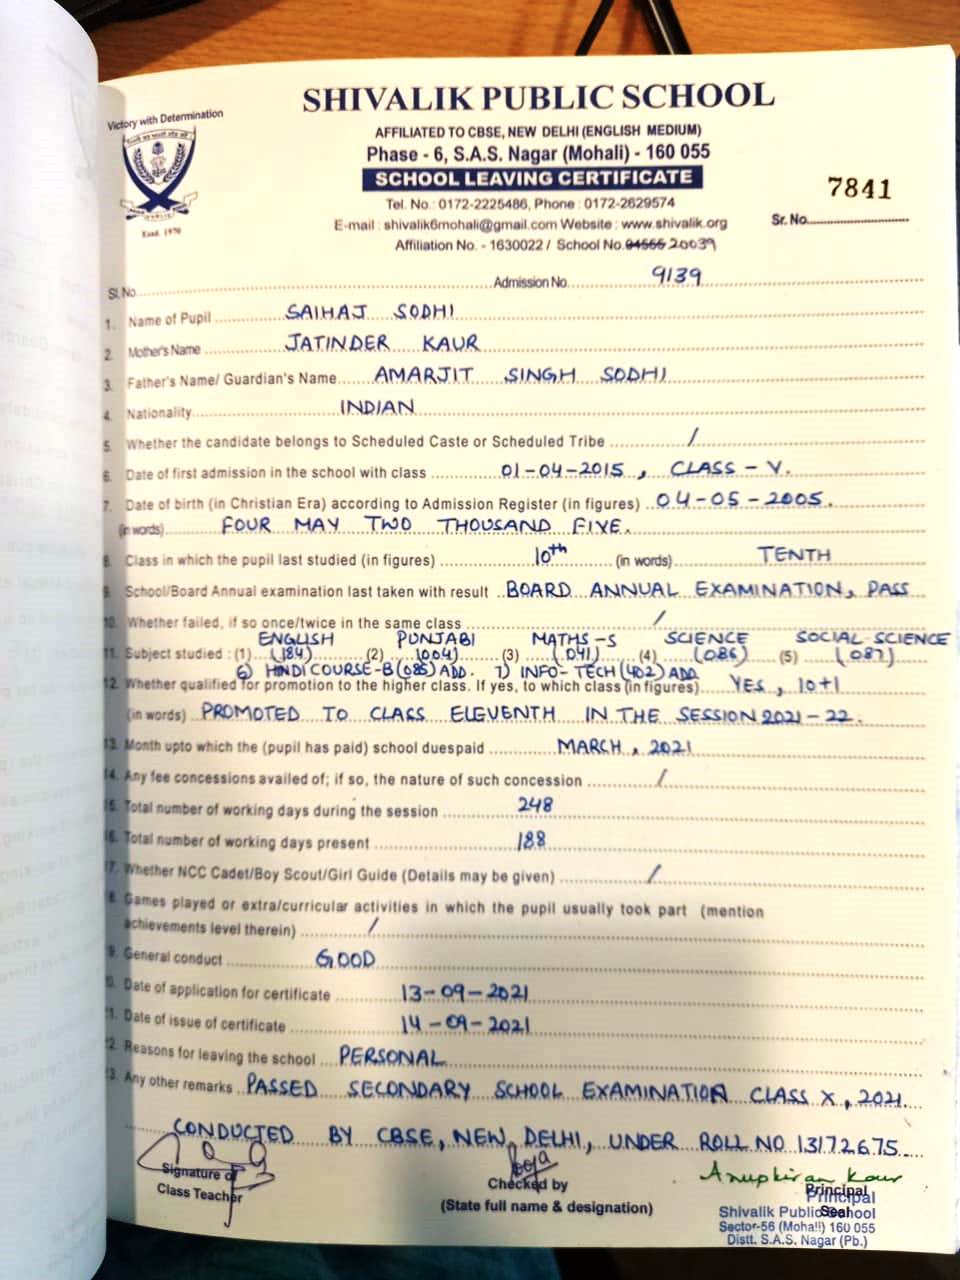 SHIVALIK PUBLIC SCHOOL
Victory with Determination
AFFILIATED TO CBSE, NEW DELHI (ENGLISH MEDIUM)
Phase - 6, S.A.S. Nagar (Mohali) - 160 055
SCHOOL LEAVING CERTIFICATE
7841
Tel. No. 0172-2225486, Phone : 0172-2629574
E-mail : shivalik6mohali@gmail.com Website : www.shivalik.org
Sr. No.
Estd. 1970
Affiliation No. - 1630022 / School No. 04555 20039
Sl.No. Admission No. 9139
1. Name of Pupil SAIHAJ SODHI
2. Mother's Name JATINDER KAUR
3. Father's Name/ Guardian's Name AMARJIT SINGH SODHI
4. Nationality INDIAN
5. Whether the candidate belongs to Scheduled Caste or Scheduled Tribe /
6. Date of first admission in the school with class 01-04-2015, CLASS - V.
7. Date of birth (in Christian Era) according to Admission Register (in figures) 04-05-2005.
(in words) FOUR MAY TWO THOUSAND FIVE.
8. Class in which the pupil last studied (in figures) 10th (in words) TENTH
9. School/Board Annual examination last taken with result BOARD ANNUAL EXAMINATION, PASS
10. Whether failed, if so once/twice in the same class /
ENGLISH PUNJABI MATHS-S SCIENCE SOCIAL SCIENCE
11. Subject studied : (1) (184) (2) (004) (3) (041) (4) (086) (5) (087)
6) HINDI COURSE-B (085) ADD. 7) INFO-TECH (402) ADD
12. Whether qualified for promotion to the higher class. If yes, to which class (in figures) YES, 10+1
(in words) PROMOTED TO CLASS ELEVENTH IN THE SESSION 2021-22.
13. Month upto which the (pupil has paid) school duespaid MARCH, 2021
14. Any fee concessions availed of; if so, the nature of such concession /
15. Total number of working days during the session 248
16. Total number of working days present 188
17. Whether NCC Cadet/Boy Scout/Girl Guide (Details may be given) /
8. Games played or extra/curricular activities in which the pupil usually took part (mention
achievements level therein) /
9. General conduct GOOD
0. Date of application for certificate 13-09-2021
1. Date of issue of certificate 14-09-2021
2. Reasons for leaving the school PERSONAL
3. Any other remarks PASSED SECONDARY SCHOOL EXAMINATION CLASS X, 2021.
CONDUCTED BY CBSE, NEW DELHI, UNDER ROLL NO 13172675.
Signature of
Class Teacher
Pooja
Checked by
(State full name & designation)
Anupkiran Kaur
Principal
Seal
Principal
Shivalik Public School
Sector-56 (Mohali) 160 055
Distt. S.A.S. Nagar (Pb.)